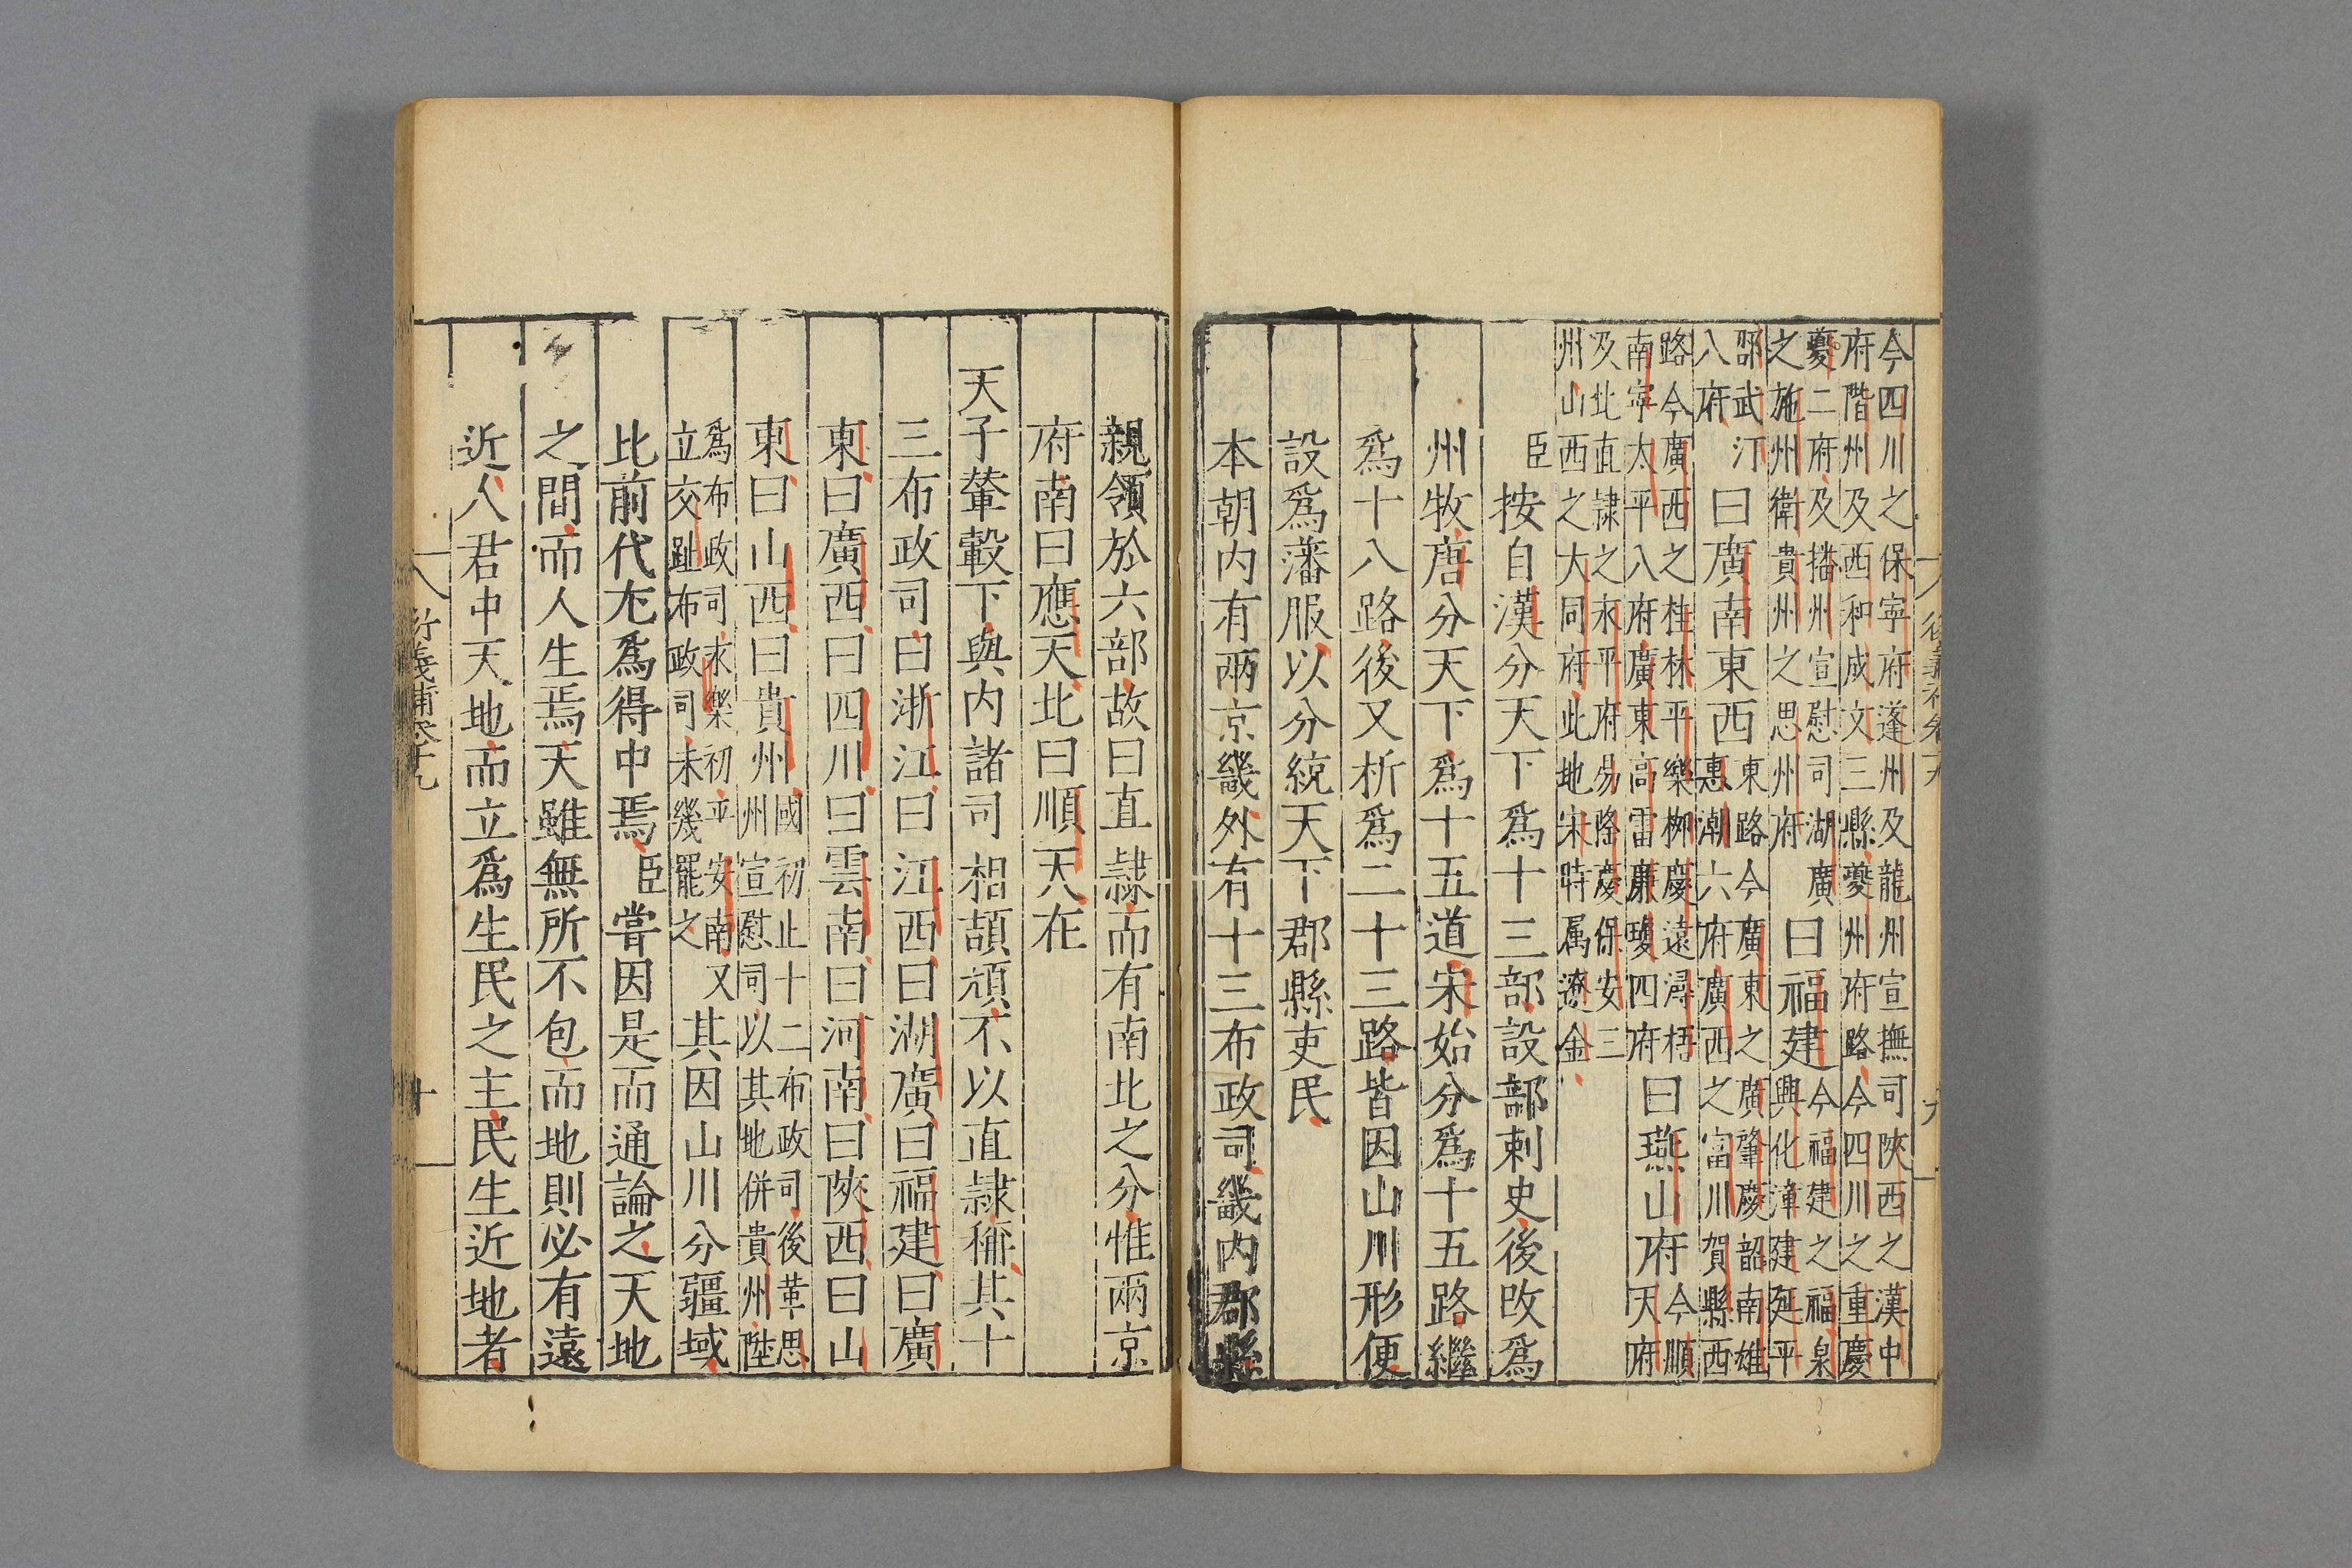 今四川之保寧府蓬州及龍州宣撫司陝西之漢中
府階州及西和成文三縣夔州府路今四川之重慶
夔二府及播州宣慰司湖廣曰福建今福建之福泉
之施州衛貴州之思州府興化漳建延平
邵武汀曰廣南東西東路今廣東之廣肇慶韶南雄
八府惠潮六府廣西之富川賀縣西
路今廣西之桂林平樂栁慶遠潯梧曰燕山府今順
南寧太平八府廣東高雷廉瓊四府天府
及北直隸之永平府易隆慶保安三
州山西之大同府此地宋時属遼金
臣按自漢分天下爲十三部設部刺史後改爲
州牧唐分天下爲十五道宋始分爲十五路繼
爲十八路後又析爲二十三路皆因山川形便
設爲藩服以分統天下郡縣吏民
本朝内有兩京畿外有十三布政司畿内郡縣
親領於六部故曰直隷而有南北之分惟兩京
府南曰應天北曰順天在
天子輦轂下與内諸司相頡頏不以直隷稱其十
三布政司曰浙江曰江西曰湖廣曰福建曰廣
東曰廣西曰四川曰雲南曰河南曰陝西曰山
東曰山西曰貴州國初止十二布政司後革思
州宣慰司以其地併貴州陞
爲布政司永樂初平安南又
立交趾布政司未幾罷之其因山川分疆域
比前代尢爲得中焉臣嘗因是而通論之天地
之間而人生焉天雖無所不包而地則必有遠
近人君中天地而立爲生民之主民生近地者
衍義補卷十九
十